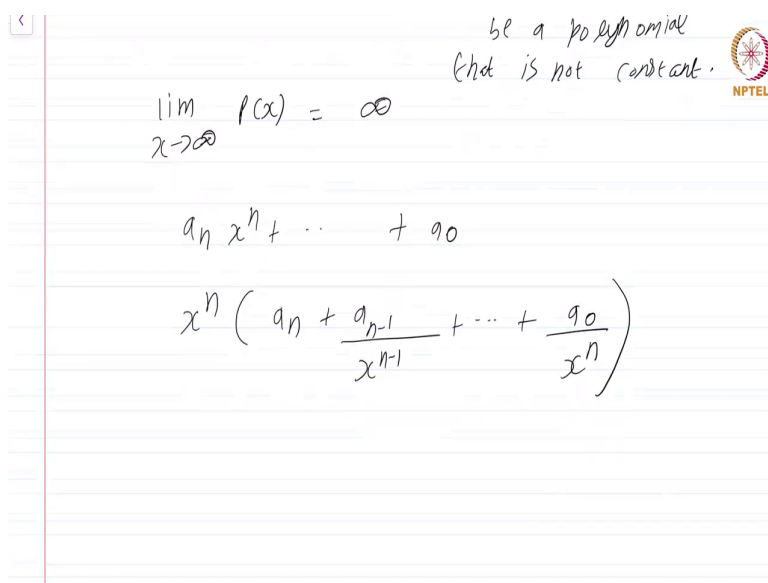 be a polynomial
that is not constant.
NPTEL
lim P(x) = ∞
x→∞
aₙ xⁿ + ·· + a₀
xⁿ ( aₙ + aₙ₋₁/xⁿ⁻¹ + ··· + a₀/xⁿ )